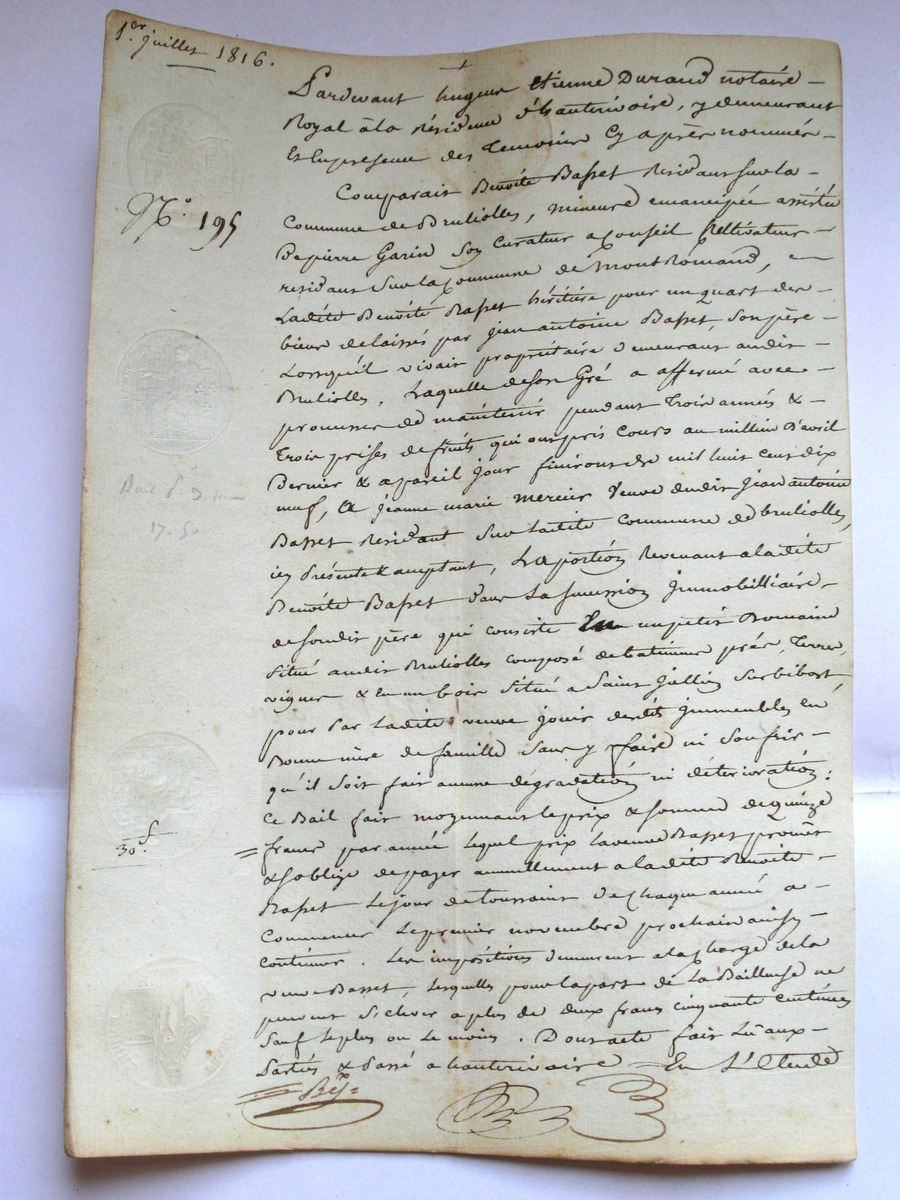 1.er juillet 1816.
Pardevant hugues etienne Durand notaire
Royal à la Résidence d'hauterivoire, y demeurant
Et En presence des Temoins Cy après nommés
N.o 195
Comparait Benoîte Basset Residant sur la
Commune de Brulliolles, mineure emancipée assistée
De pierre Garin son Curateur a Conseil Cultivateur
residant sur la Commune de Montromand,
Ladite Benoîte Basset héritière pour un quart des
biens delaissés par jean antoine Basset, son père
Lorsqu'il vivait propriétaire demeurant audit
Brulliolles, Laquelle de son Gré a affermé avec
promesse de maintenir pendant Trois années &
Trois prises de fruits qui ont pris cours au millieu d'avril
Dernier & a pareil jour finiront de mil huit cent dix
neuf, A jeanne marie mercier Veuve dudit jean antoine
Basset Residant sur ladite Commune de brulliolles,
icy Présente & acceptant, La portion Revenant a ladite
Benoîte Basset dans La succession Immobilliaire
de son dit père qui consiste En un petit Domaine
situé audit Brulliolles composé de batiments prés, Terres,
vignes & En un bois situé a Saint jullien sur bibost,
pour Par Ladite veuve jouir desdits immeubles en
Bonne mère de famille sans y faire ni souffrir
qu'il soit fait aucune dégradation ni déterioration:
Ce Bail fait moyennant le prix & somme de quinze
30.f
francs par année Lequel prix la veuve Basset promet
& s'oblige de payer annuellement a ladite Benoite
Basset Le jour de toussaint de Chaque année a
Commencer Le premier novembre prochain ainsy
continuer. Les impositions demeurent a la Charge de la
veuve Basset, Lesquelles pour la part de La Bailleuse ne
peuvent s'elever a plus de deux francs cinquante centimes
sauf le plus ou Le moins. Dont acte fait Lû aux
Parties & Passé a hauterivoire En L'Etude